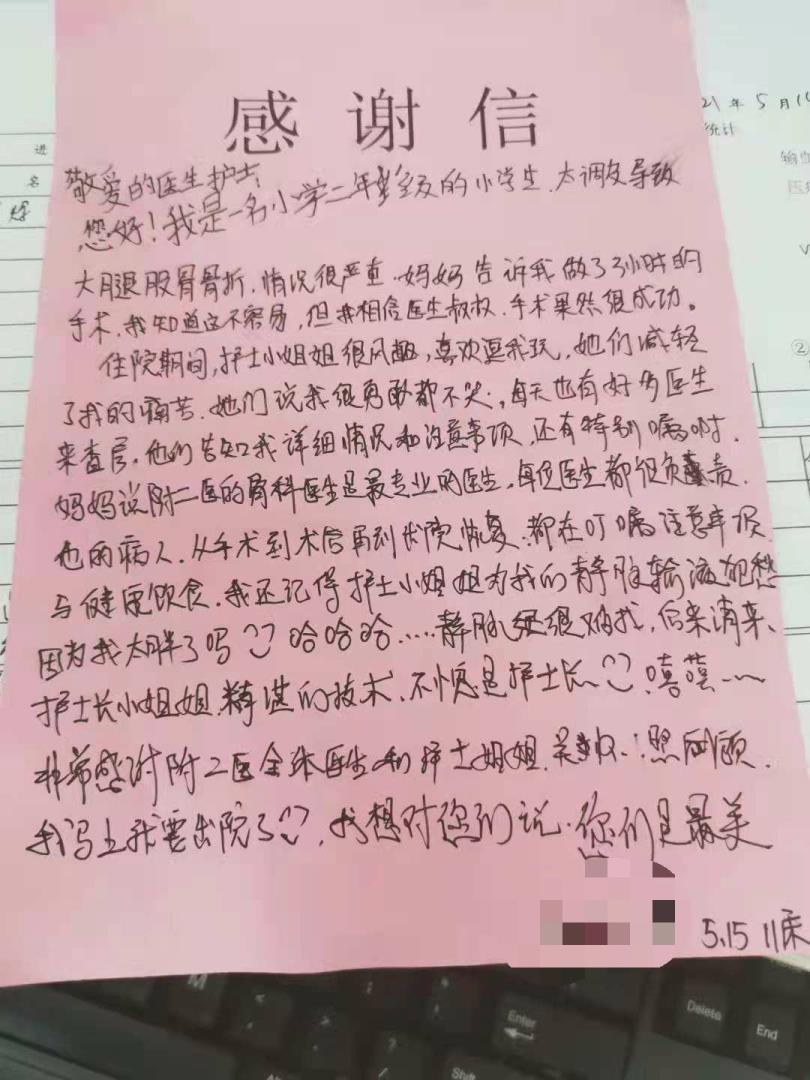 感谢信
敬爱的医生护士:
您好!我是一名小学二年级的小学生.太调皮导致
大腿股骨骨折,情况很严重.妈妈告诉我做了3小时的
手术.我知道这不容易,但我相信医生叔叔.手术果然很成功。
住院期间,护士小姐姐很风趣,喜欢逗我玩,她们减轻
了我的痛苦.她们说我很勇敢都不哭.每天也有好多医生
来查房.他们告知我详细情况和注意事项,还有特别嘱咐.
妈妈说附二医的骨科医生是最专业的医生,每位医生都很负责.
他的病人.从手术到术后再到出院恢复.都在叮嘱注意事项
与健康饮食.我还记得护士小姐姐为我的静脉输液犯愁
因为我太胖了吗 哈哈哈.....静脉 很难找,后来请来、
护士长小姐姐.精湛的技术.不愧是护士长 .嘻嘻~~
非常感谢附二医全体医生和护士姐姐. 照顾.
我马上就要出院了 .我想对您们说.您们是最美
5.15 11床
21年5月1
统计
进
名
②
M
Enter
Delete
End
Shift
Alt